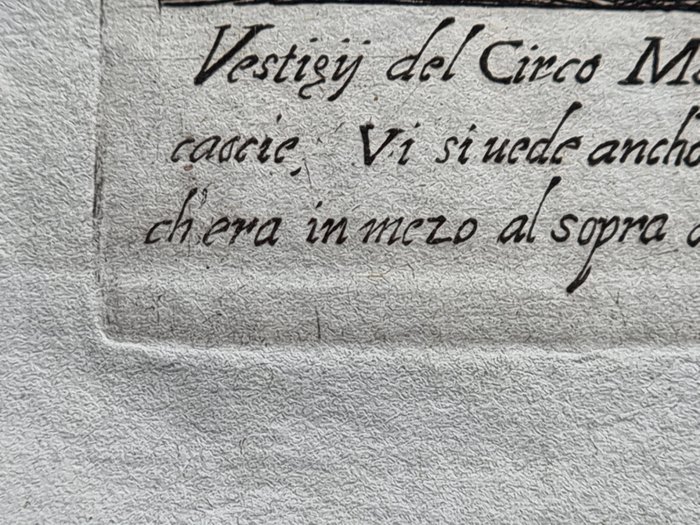 Vestigij del Circo M
caccie, Vi si uede ancho
ch'era in mezo al sopra